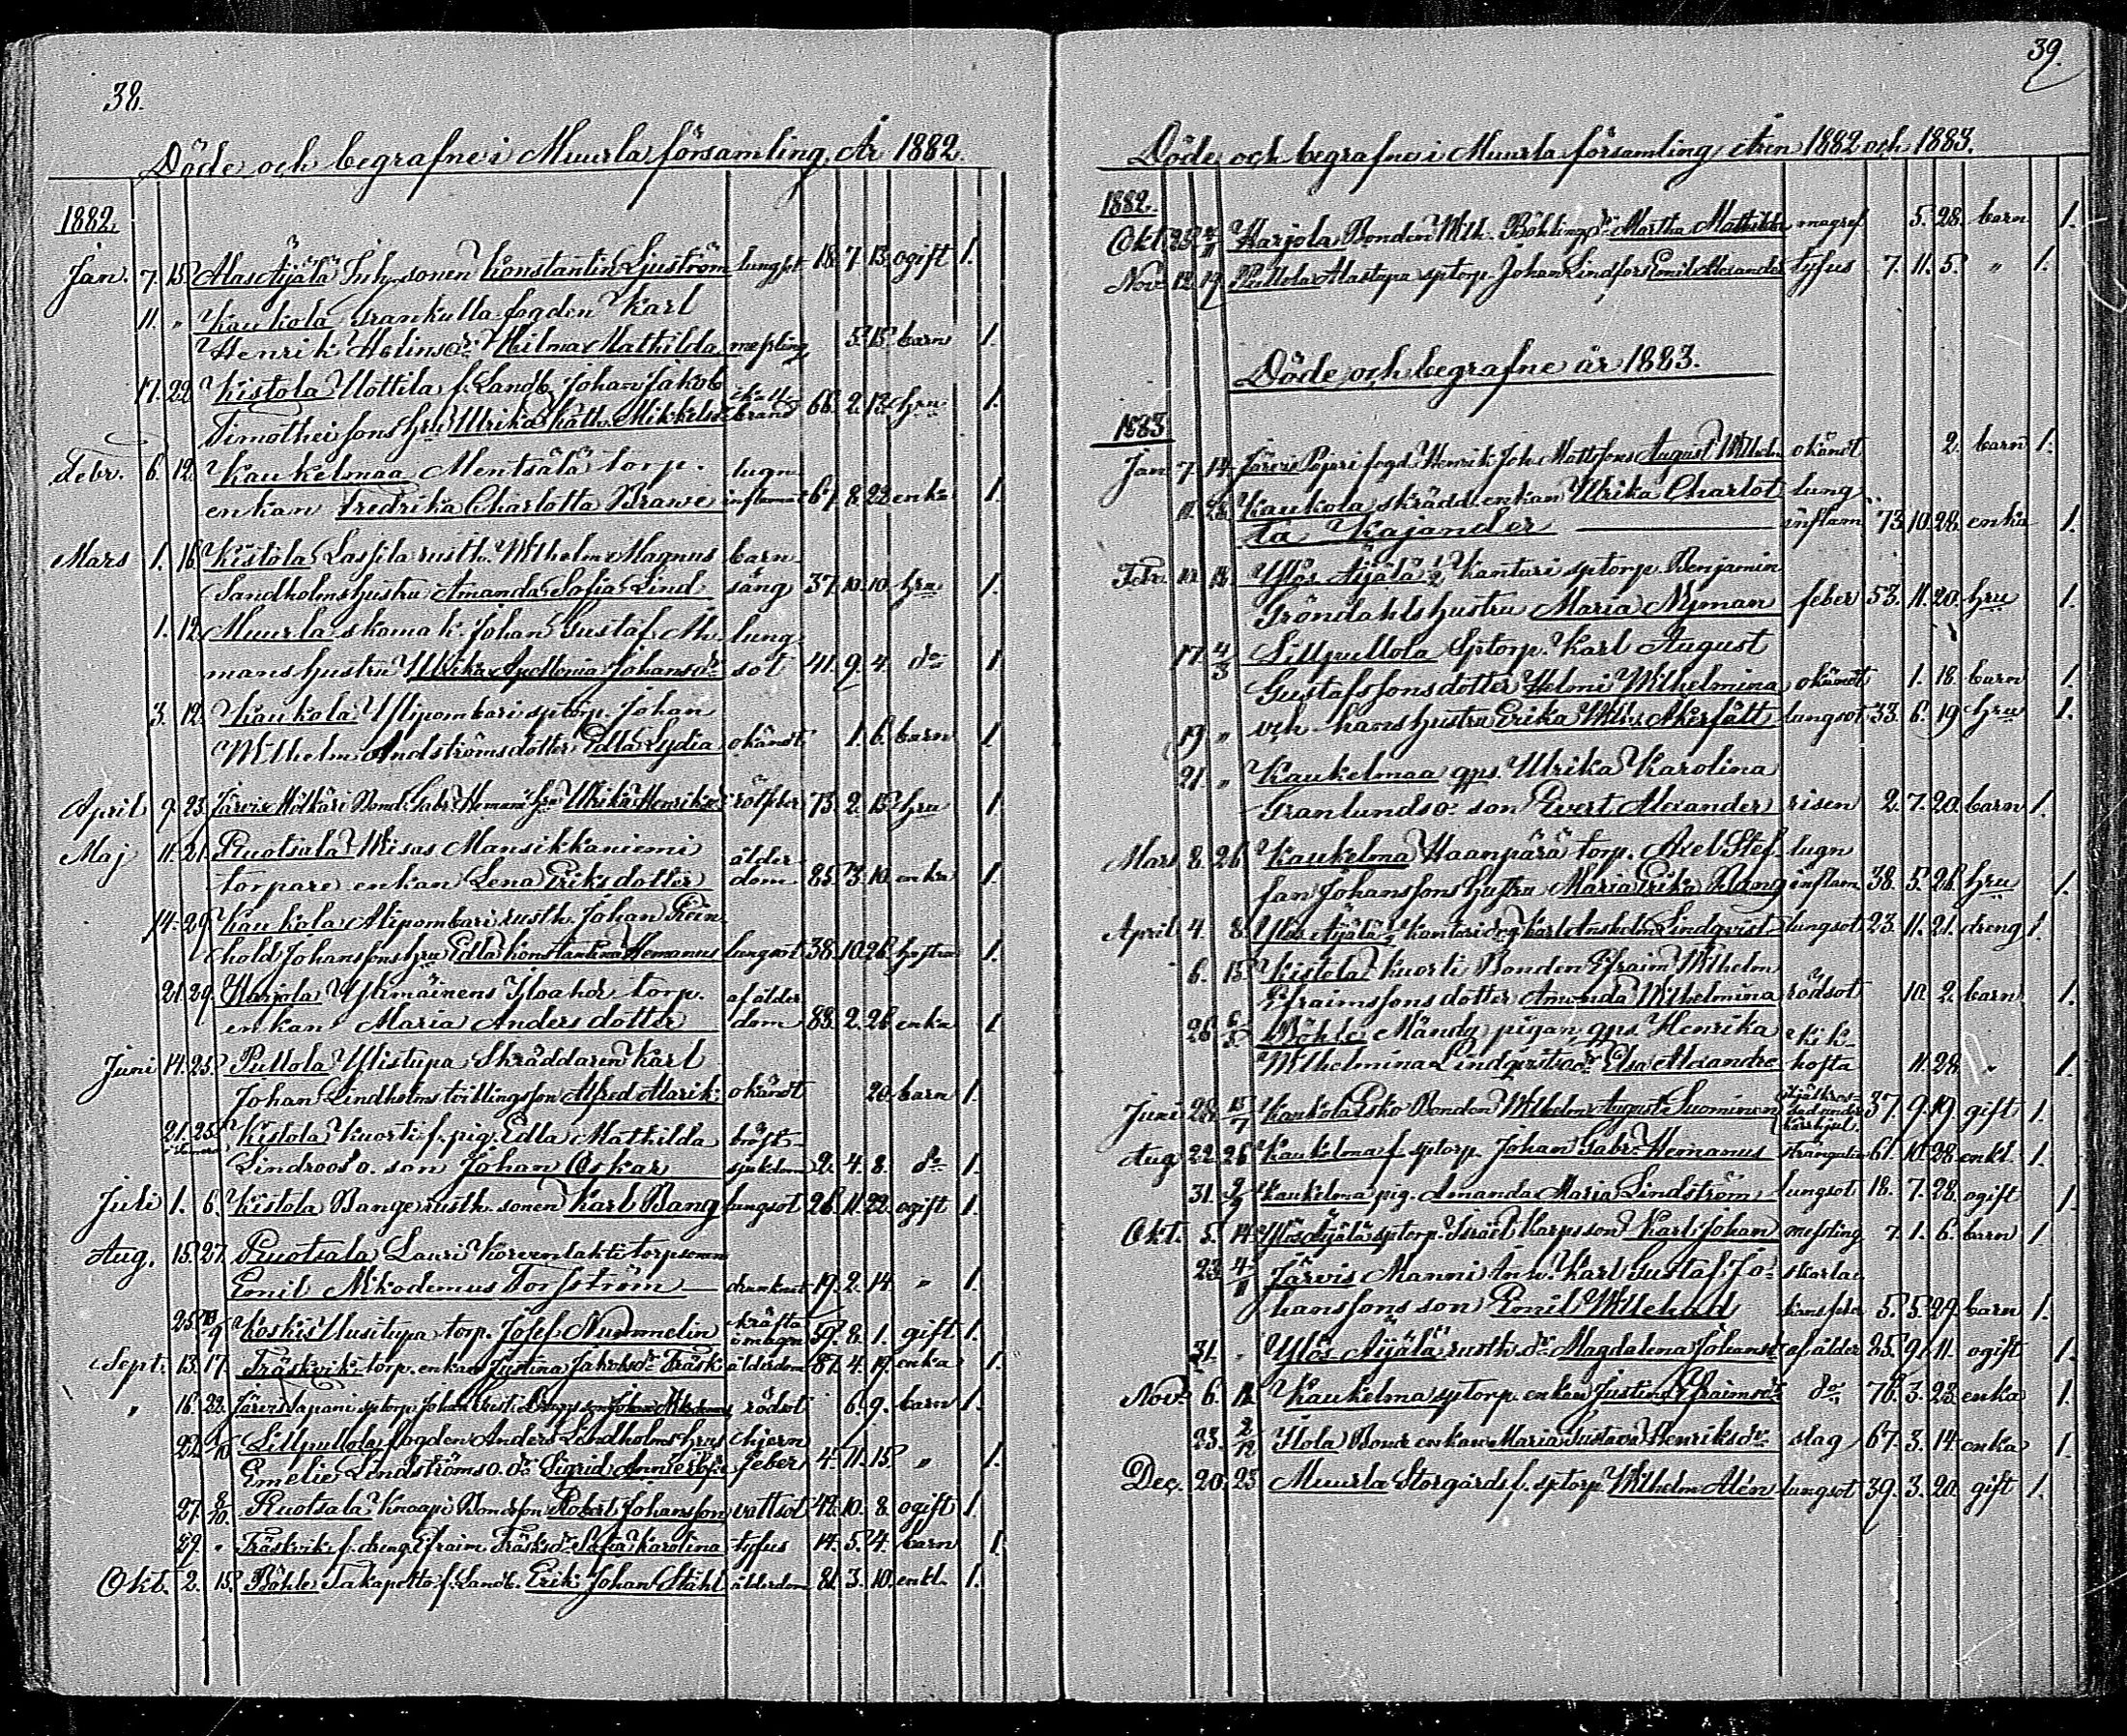 38.
Döde och begrafne i Muurla församling År 1882.
1882.
Jan. 7. 15. Alas Äijälä Inh. sonen Konstantin Ljuström lungsot 18. 7. 13. ogift 1.
11. " Kaukola Grankulla fogden Karl
Henrik Helins dr Hilma Mathilda messling 5. 15. barn 1.
17. 22. Kistola Uottila f. Landb. Johan Jakob
Timotheisons hru Ulrika Kath. Mikkelsdr brand 66. 2. 13. hru 1.
Febr. 6. 12. Kaukelmaa Mentsälä torp. lugn
enkan Fredrika Charlotta Brawe inflamat 67. 8. 22. enka 1.
Mars 1. 16. Kistola Lassila rusth. Wilhelm Magnus barn
Sandholms hustru Amanda Sofia Lind säng 37. 10. 10. hru 1.
1. 12. Muurla skomak. Johan Gustaf Åh lung
mans hustru Ulrika Apollonia Johansdr sot 41. 9. 4. do 1
3. 12. Kaukola Ylipombari sptorp. Johan
Wilhelm Andströms dotter Edla Lydia okändt 1. 6. barn 1.
April 9. 23. Järvis Hölkäri Bond. Gabr. Hemans hru Ulrika Henriksdr rötfeber 73. 2. 15. hru 1.
Maj 11. 21. Ruotsala Wisas Mansikkaniemi ålder
torpare enkan Lena Eriksdotter dom 85. 3. 10. enka 1.
14. 29. Kaukola Alipombari rusth. Johan Rein
hold Johanssons hru Edla Konstantina Hemanus lungsot 38. 10. 26. hustru 1.
21. 29. Harjola Ylimäinens Iloahde torp. af ålder
enkan Maria Andersdotter dom 88. 2. 26. enka 1
Juni 14. 25. Pullola Ylistupa Skräddaren Karl
Johan Lindholms tvillingsson Alfred Alarik okändt 20. barn 1.
21. 25. Kistola Kuorti f. pig. Edla Mathilda bröst
Lindroos o. son Johan Oskar sjukdom 2. 4. 8. do 1.
Juli 1. 6. Kistola Bange rusth. sonen Karl Bang lungsot 26. 11. 22. ogift 1.
Aug. 15. 27. Ruotsala Lauri Korvenlahti torp sonen
Emil Nikodemus Forsström drunknat 19. 2. 14. " 1.
25. 10/9 Koskis Uusitupa torp. Josef Nummelin kräfta i magen 59. 8. 1. gift 1.
Sept. 13. 17. Träskvik torp. enkan Justina Jakobsdr Träsk ålderdom 87. 4. 19. enka 1.
" 16. 22. Järvis sptorp. Johan son Johan Nikodemus rödsot 6. 9. barn 1.
22. 1/10 Lillpullola fogden Anders Lindholms hrus hjern
Emelie Lindströms o. dr Sigrid feber 4. 11. 15. " 1.
27. 8/10 Ruotsala Knaapi Bondson Robert Johansson vattsot 42. 10. 8. ogift 1.
29. " Träskvik f. dreng Efraim Träsks dr Sofia Karolina tyfus 14. 5. 4. barn 1.
Okt. 2. 15. Böhle Takapelto f. Landb. Erik Johan Ståhl ålderdom 81. 3. 10. enkl. 1.
39.
Döde och begrafne i Muurla församling åren 1882 och 1883.
1882.
Okt. 23. 4/11 Harjola Bonden Wilh. Böhlings dr Martha Mathilda magref 5. 28. barn 1.
Nov. 12. 19. Pullola Alastupa sptorp. Johan Lindfors Emil Alexander tyfus 7. 11. 5. " 1.
Döde och begrafne år 1883.
1883
Jan 7 14 Järvis Pajari fogd. Henrik Joh. Mattssons August Wilhelm okändt 2. barn 1.
11. 28. Kaukola skrädd. enkan Ulrika Charlot lung
ta Kajander inflam 73. 10. 28. enka 1.
Febr. 11. 18. Ylös Äijälä 1/2 Kantari sptorp Benjamin
Gröndahls hustru Maria Nyman feber 53. 11. 20. hru 1.
17. 4/3 Lillpullola Sptorp. Karl August
Gustafssons dotter Helmi Wilhelmina okändt 1. 18. barn 1.
19 " och hans hustru Erika Wilh. Åkerfält lungsot 33. 6. 19 hru 1.
21. " Kaukelmaa qps. Ulrika Karolina
Granlunds o. son Evert Alexander risen 2. 7. 20. barn 1.
Mars 8. 26 Kaukelma Haanpärä torp. Axel Stef lugn
fan Johanssons hustru Maria Erika Bang inflam 38. 5. 26. hru 1.
April 4. 8. Ylös Äijälä Kantari drg Karl Anshelm Lindqvist lungsot 23. 11. 21. dreng 1.
6. 15. Kistola Kuorti Bonden Efraim Wilhelm
Efraimssons dotter Amanda Wilhelmina rödsot 10. 2. barn 1.
26 6/5 Böhle Mändy pigan qps Henrika kik
Wilhelmina Lindqvists o. dr Elsa Alexandra hosta 11. 28. " 1.
Juni 28. 15/7 Kaukola Esko Bonden Wilhelm August Suominen 37. 9. 19 gift 1.
Aug 22. 26. Kaukelma f. sptorp. Johan Gabr. Hemanus 61. 10. 28. enkl. 1.
31. 2/9 Kaukelma pig. Amanda Maria Lindström lungsot 18. 7. 28. ogift 1.
Okt. 5. 14. Ylös Äijälä sptorp. Israel Karps son Karl Johan messling 7. 1. 6. barn 1
23. 4/11 Järvis Manni Inh. Karl Gustaf Jo- skarla
hanssons son Emil Willehad kansfeber 5. 5. 29. barn 1.
31. " Ylös Äijälä rusth. dr Magdalena Johansdr af ålder 85. 9. 11. ogift 1.
Nov. 6. 11. Kaukelma sptorp. enkan Justina Efraimsdr do 76. 3. 23. enka 1.
23. 2/12 Ilola Bond. enkan Maria Gustava Henriksdr slag 67. 3. 14. enka 1.
Dec. 20. 23 Muurla Storgårds f. sptorp. Wilhelm Alén lungsot 39. 3. 20. gift 1.